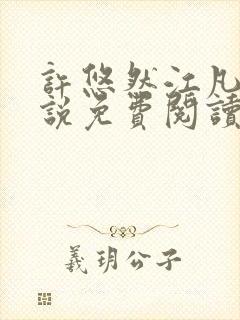 許悠然江凡
説免費閱讀
義玥公子